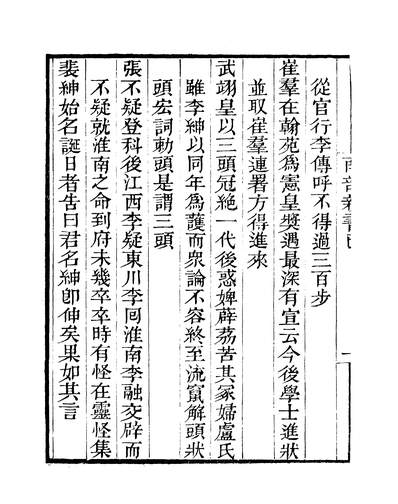 從官行李傳呼不得過三百步
崔羣在翰苑爲憲皇獎遇最深有宣云今後學士進狀
並取崔羣連署方得進來
武翊皇以三頭冠絕一代後惑婢薛荔苦其冢婦盧氏
雖李紳以同年爲護而衆論不容終至流竄解頭狀
頭宏詞勅頭是謂三頭
張不疑登科後江西李疑東川李回淮南李融交辟而
不疑就淮南之命到府未幾卒卒時有怪在靈怪集
裴紳始名誕日者告曰君名紳卽伸矣果如其言
南部新書
一